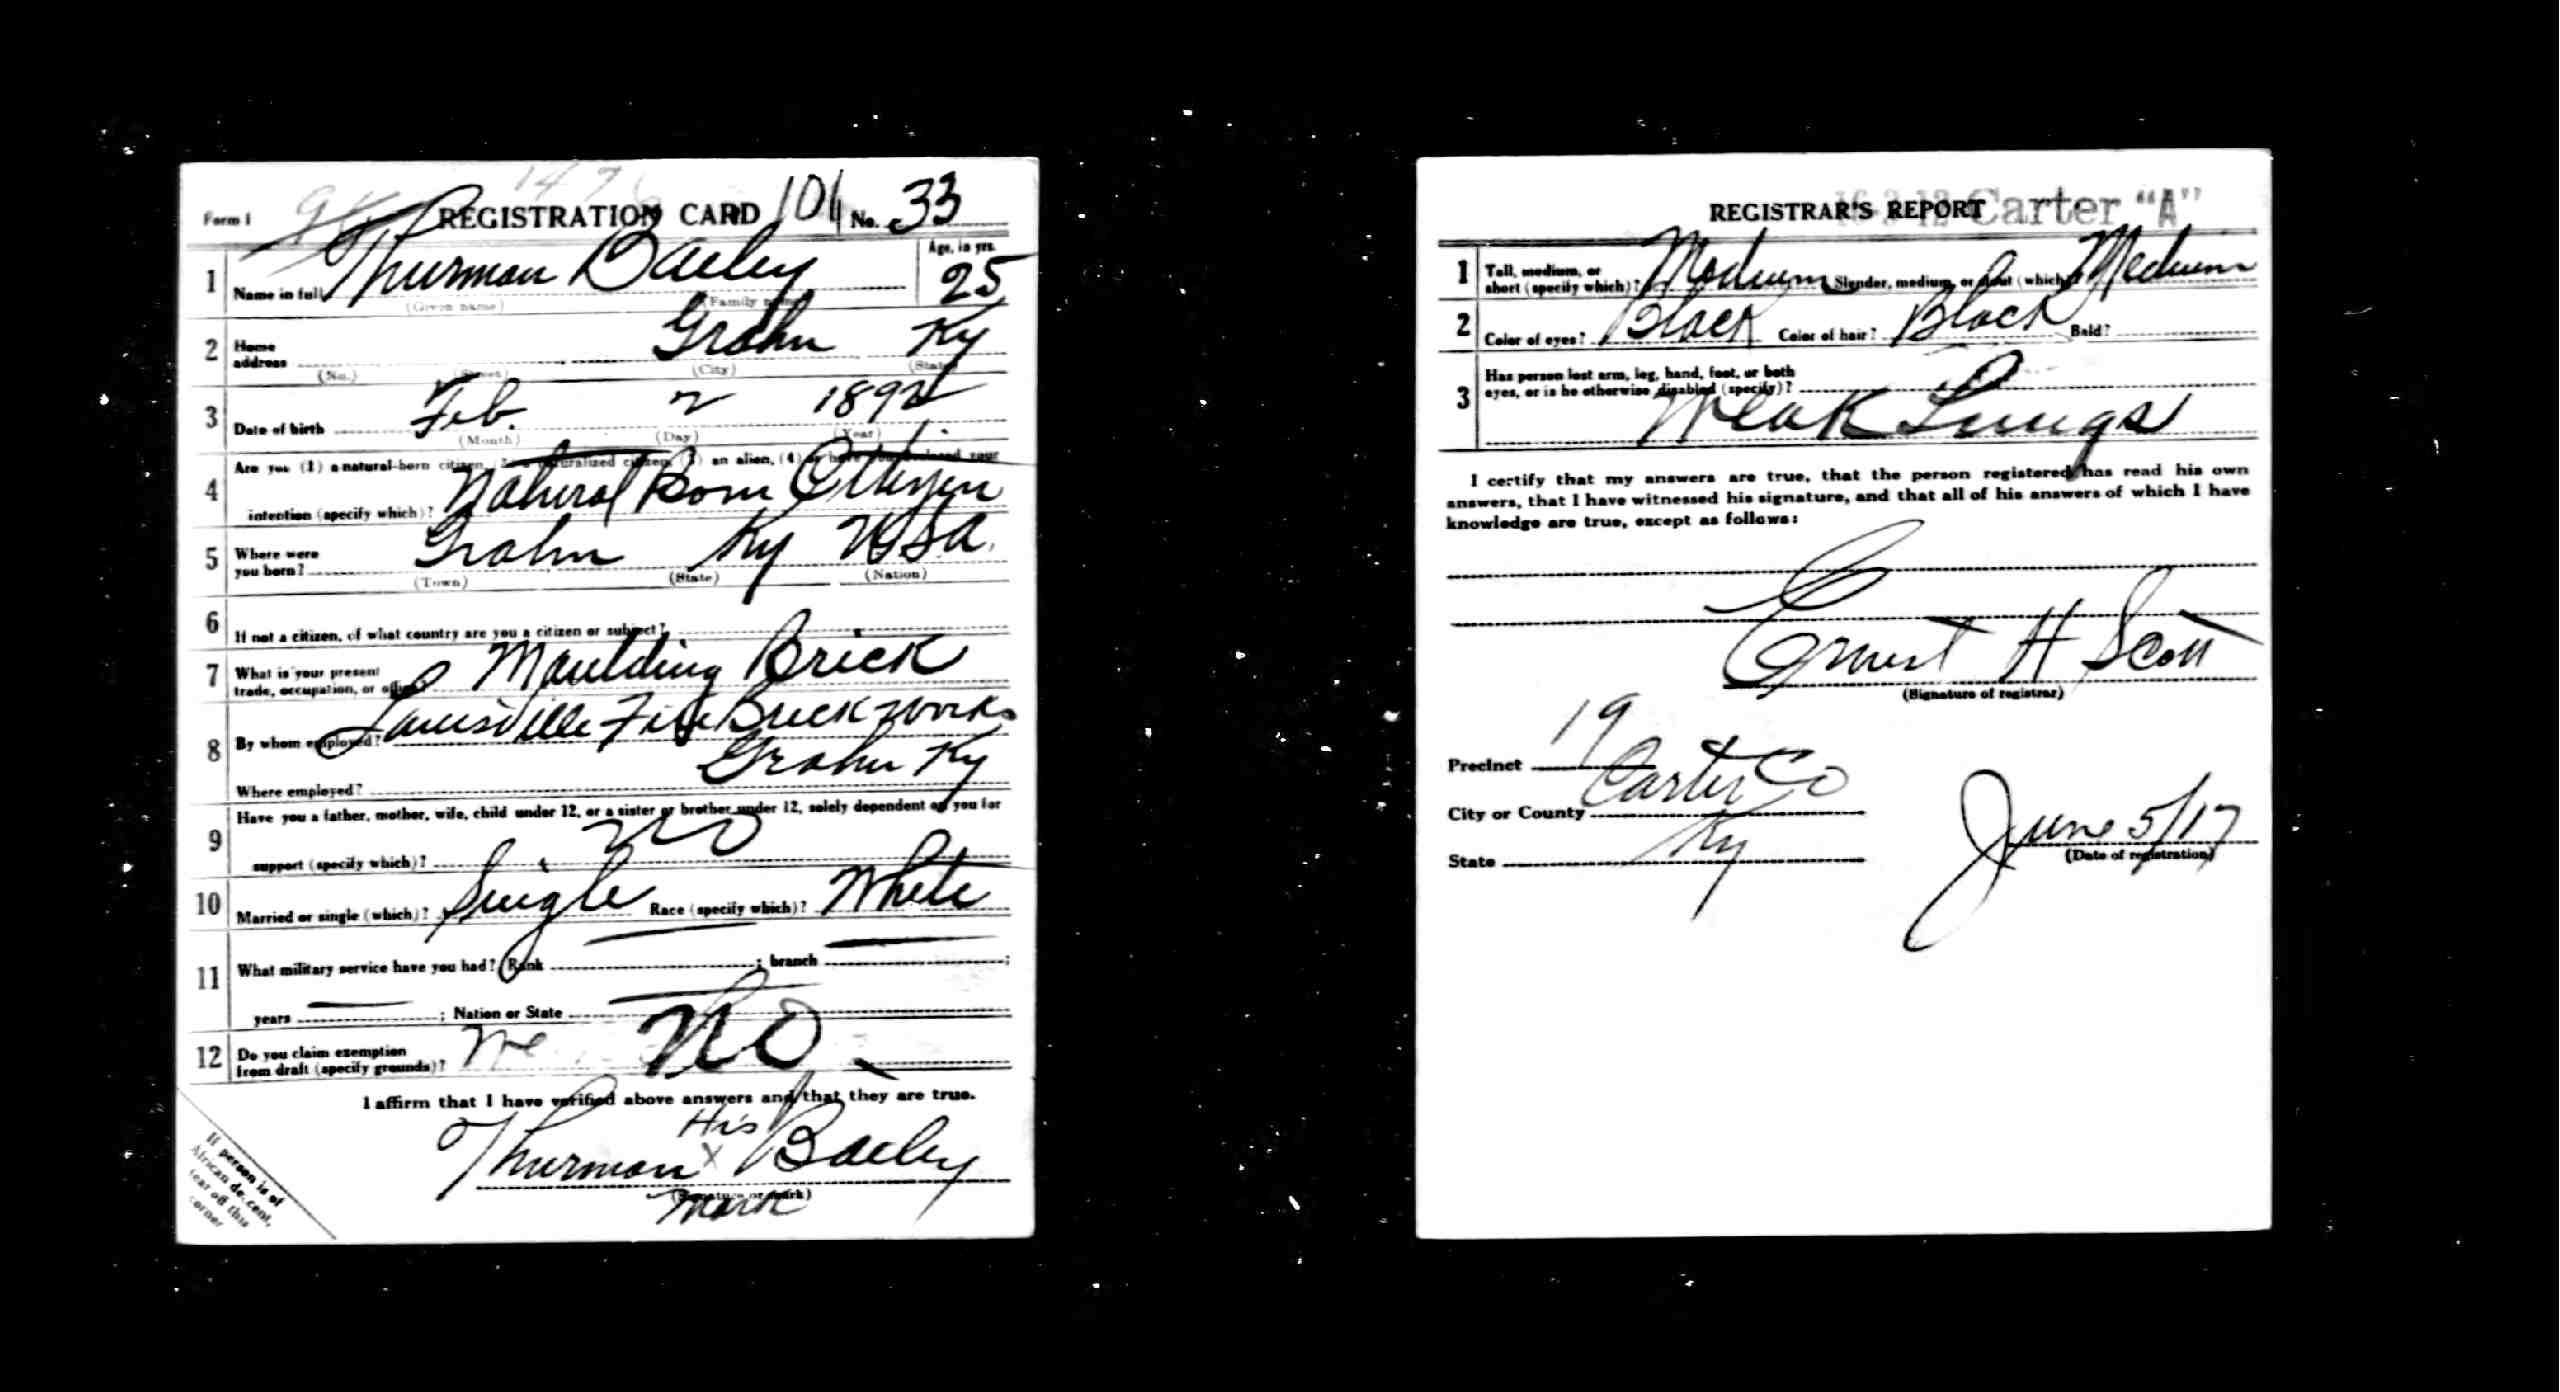 Form 1 REGISTRATION CARD 101 No. 33
1 Name in full Thurman Bailey Age, in yrs. 25
(Given name) (Family name)
2 Home address Grahn Ky
(No.) (Street) (City) (State)
3 Date of birth Feb. 2 1892
(Month) (Day) (Year)
4 Are you (1) a natural-born citizen, (2) a naturalized citizen, (3) an alien, (4) or have you declared your
intention (specify which)? Natural Born Citizen
5 Where were you born? Grahn Ky USA.
(Town) (State) (Nation)
6 If not a citizen, of what country are you a citizen or subject?
7 What is your present trade, occupation, or office? Maulding Brick
8 By whom employed? Louisville Fire Brick works
Where employed? Grahn Ky
9 Have you a father, mother, wife, child under 12, or a sister or brother under 12, solely dependent on you for
support (specify which)? No
10 Married or single (which)? Single Race (specify which)? White
11 What military service have you had? Rank ; branch ;
years ; Nation or State
12 Do you claim exemption from draft (specify grounds)? No
I affirm that I have verified above answers and that they are true.
His
Thurman X Bailey
(Signature or mark)
mark
If person is of
African descent,
tear off this
corner
REGISTRAR'S REPORT 16-3-12 Carter "A"
1 Tall, medium, or short (specify which)? Medium Slender, medium, or stout (which)? Medium
2 Color of eyes? Black Color of hair? Black Bald?
3 Has person lost arm, leg, hand, foot, or both
eyes, or is he otherwise disabled (specify)?
Weak Lungs
I certify that my answers are true, that the person registered has read his own
answers, that I have witnessed his signature, and that all of his answers of which I have
knowledge are true, except as follows:
Ernest H Scott
(Signature of registrar)
Precinct 19
City or County Carter Co
State Ky
June 5/17
(Date of registration)